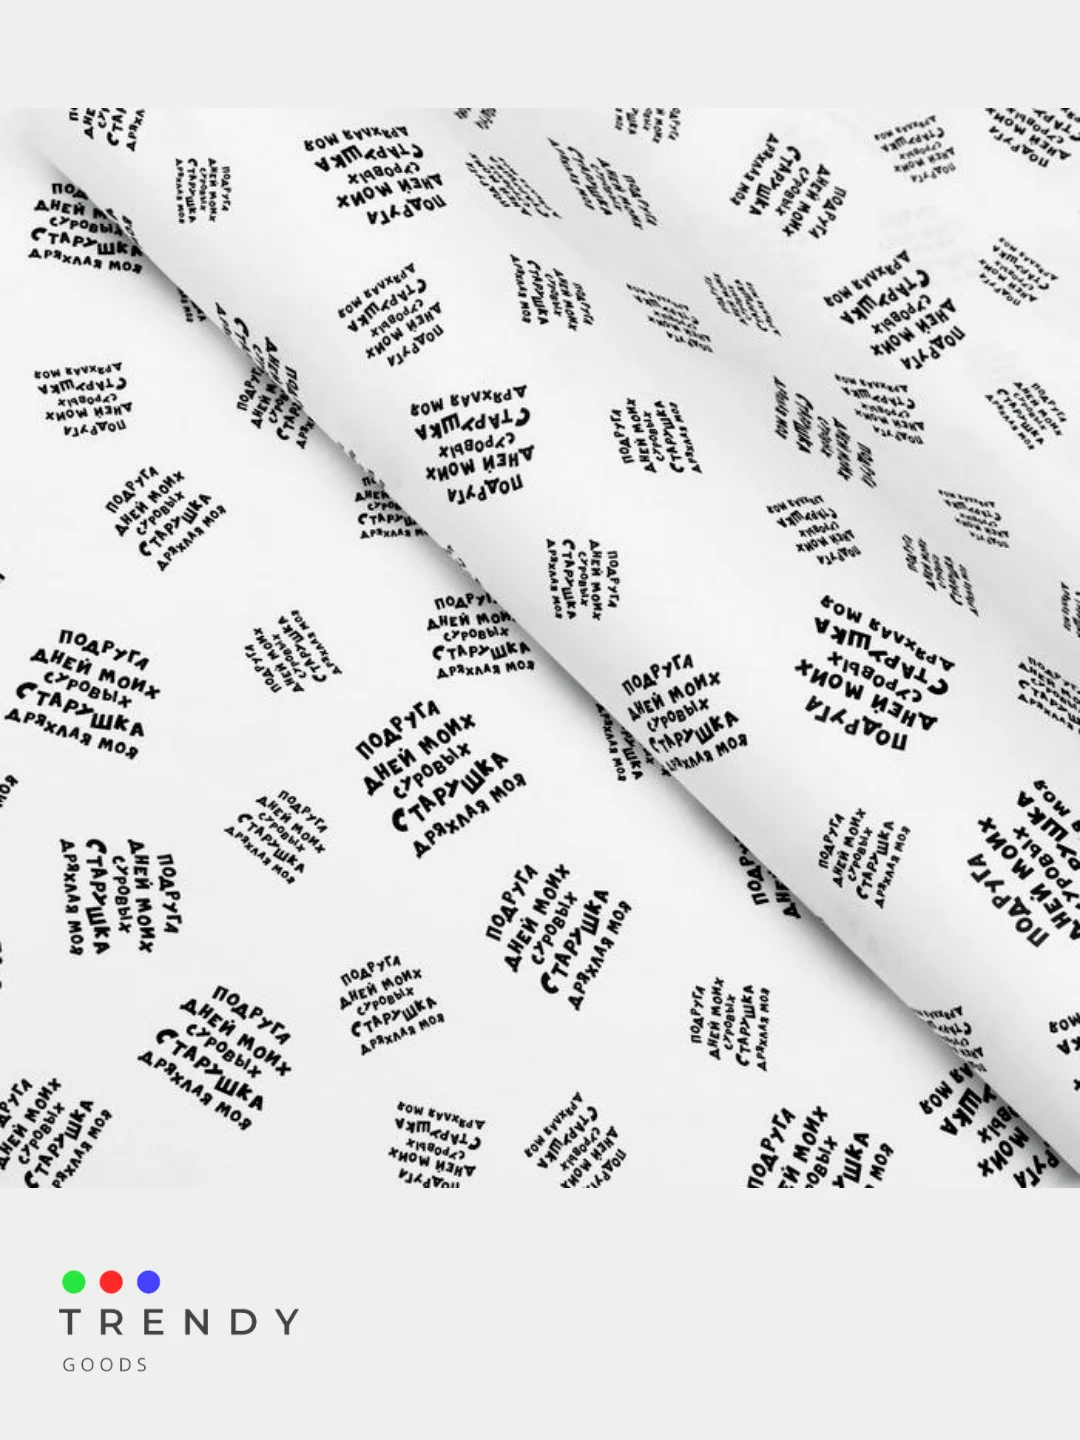 ПОДРУГА
ДНЕЙ МОИХ
СУРОВЫХ
СТАРУШКА
ДРЯХЛАЯ МОЯ
TRENDY
GOODS